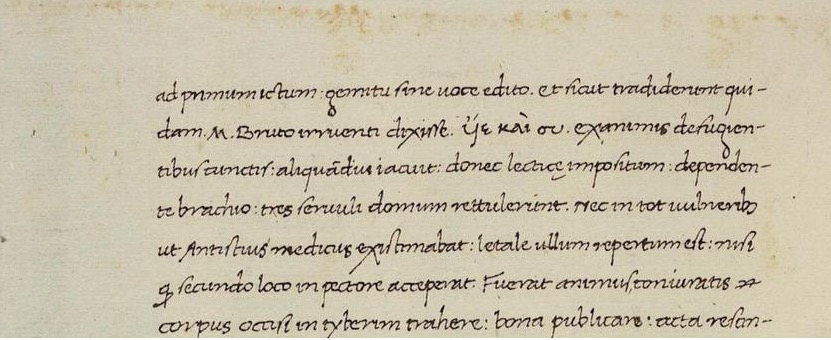 ad primum ictum: gemitu sine uoce edito. et sicut tradiderunt qui-
dam. M. Bruto irruenti dixisse. Ὑιε και συ. exanimis defugien-
tibus cunctis: aliquãdiu iacuit: donec lecticę impositum: dependen-
te brachio: tres seruuli domum rettulerunt. Nec in tot uulneribꝫ
ut Antistius medicus existimabat: letale ullum repertum est: nisi
ꝙ secundo loco in pectore acceperat. Fuerat animus coniuratis &
corpus occisi in tyberim trahere: bona publicare: acta rescin-